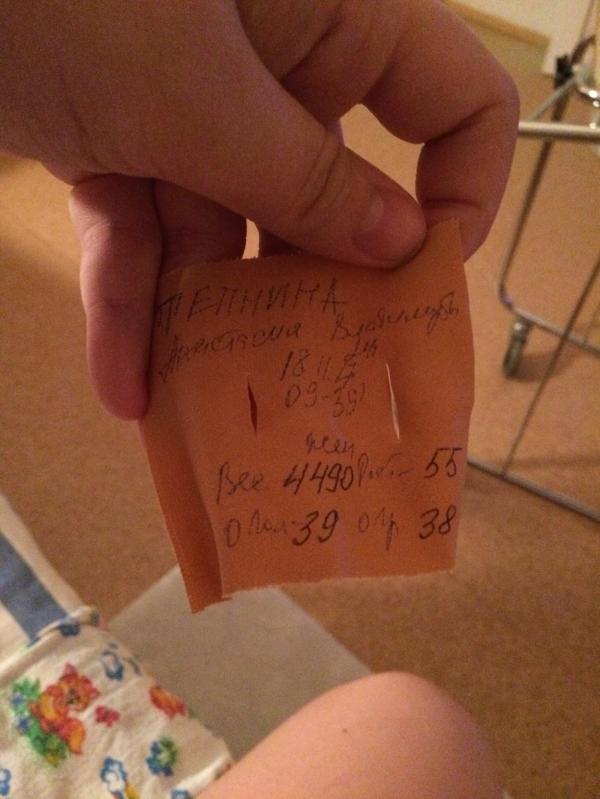 ТЕПНИНА
Анастасия Владимировна
18.11.
09-39
жен
Вес 4490 Рост- 55
О гол-39 О гр 38